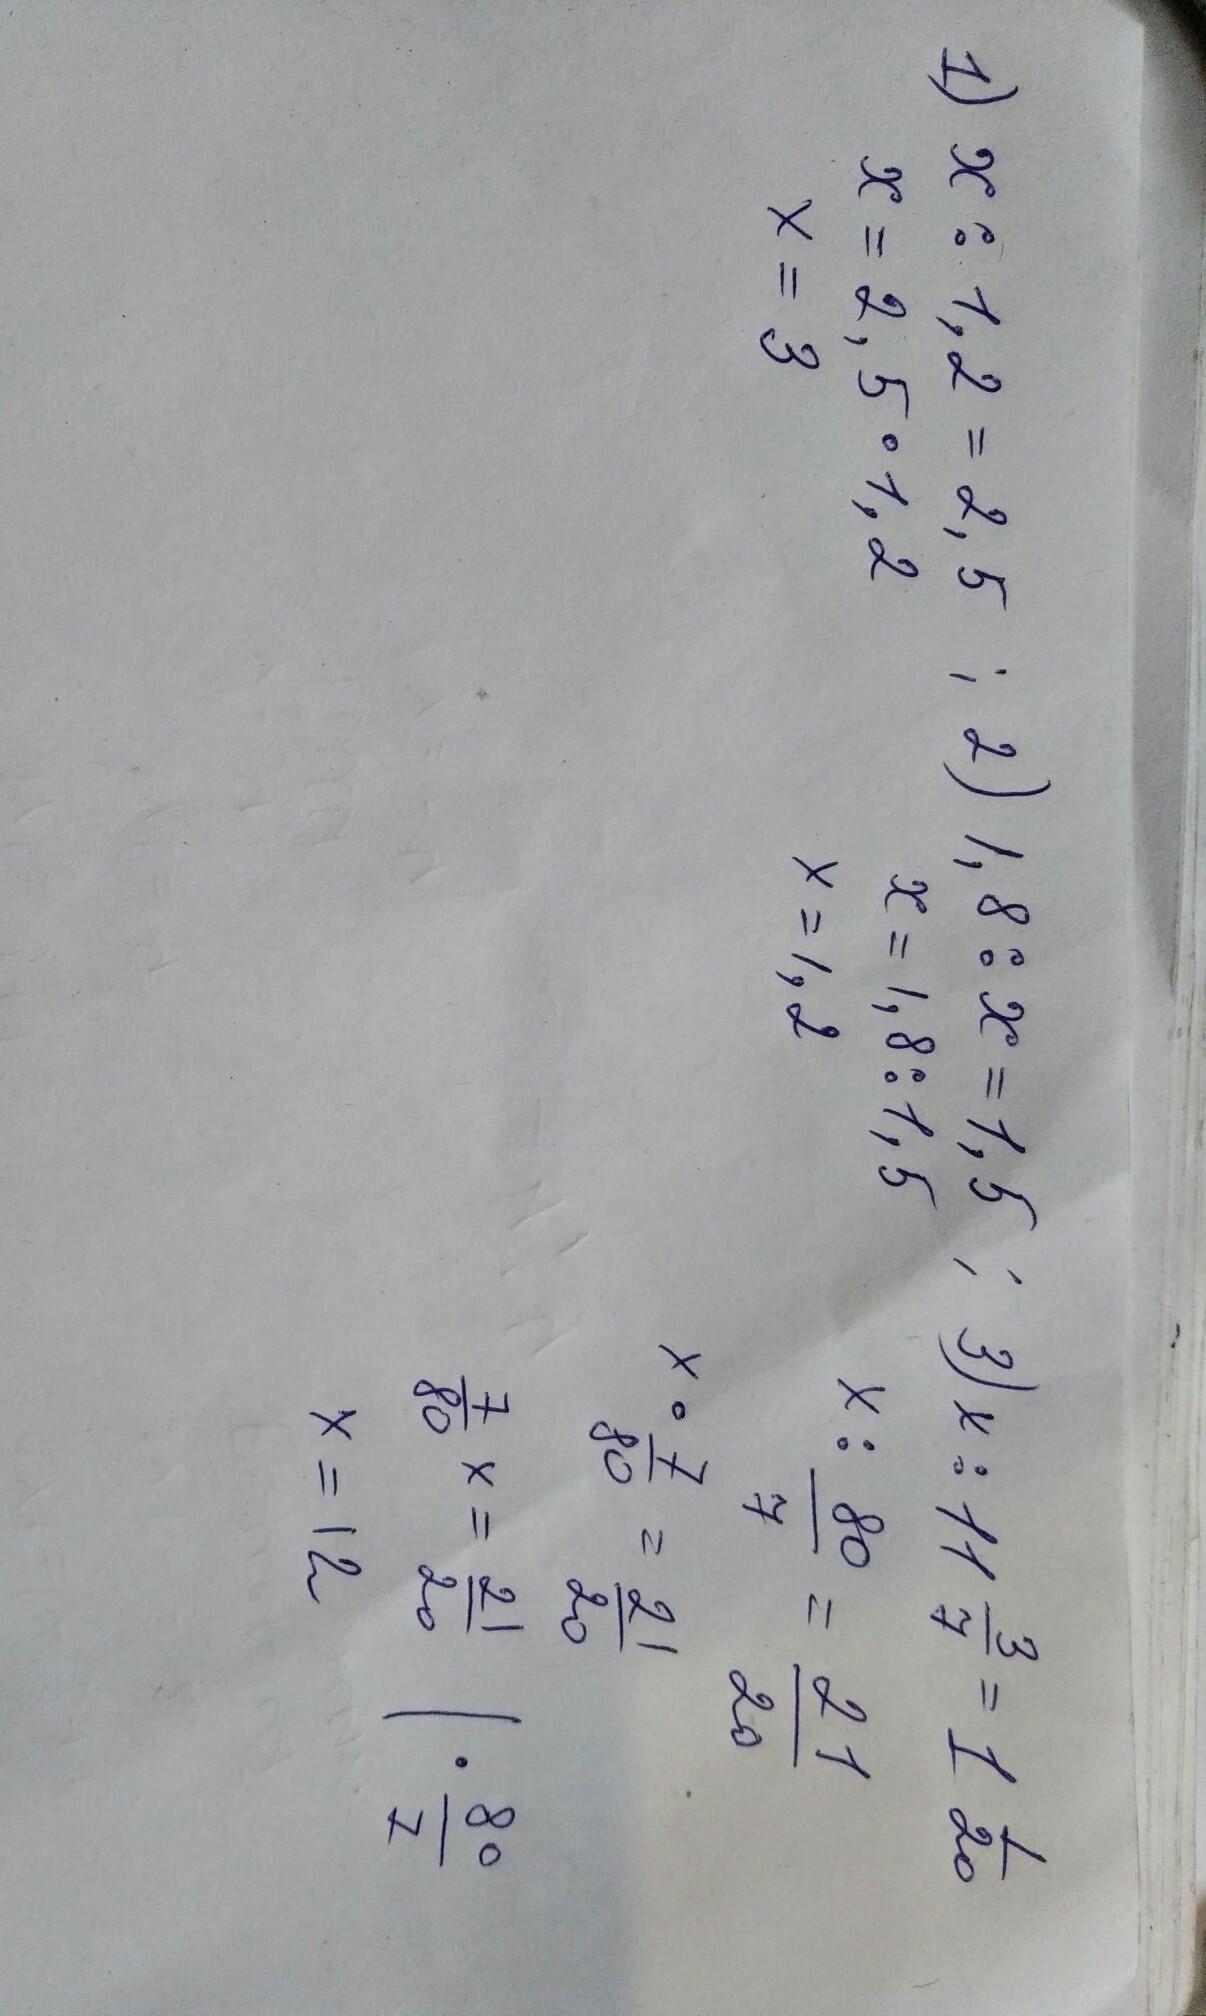 1) x : 1,2 = 2,5 ; 2) 1,8 : x = 1,5 ; 3) x : 11 3/7 = 1 1/20
x = 2,5 · 1,2
x = 3
x = 1,8 : 1,5
x = 1,2
x : 80/7 = 21/20
x · 7/80 = 21/20
7/80 x = 21/20 | · 80/7
x = 12